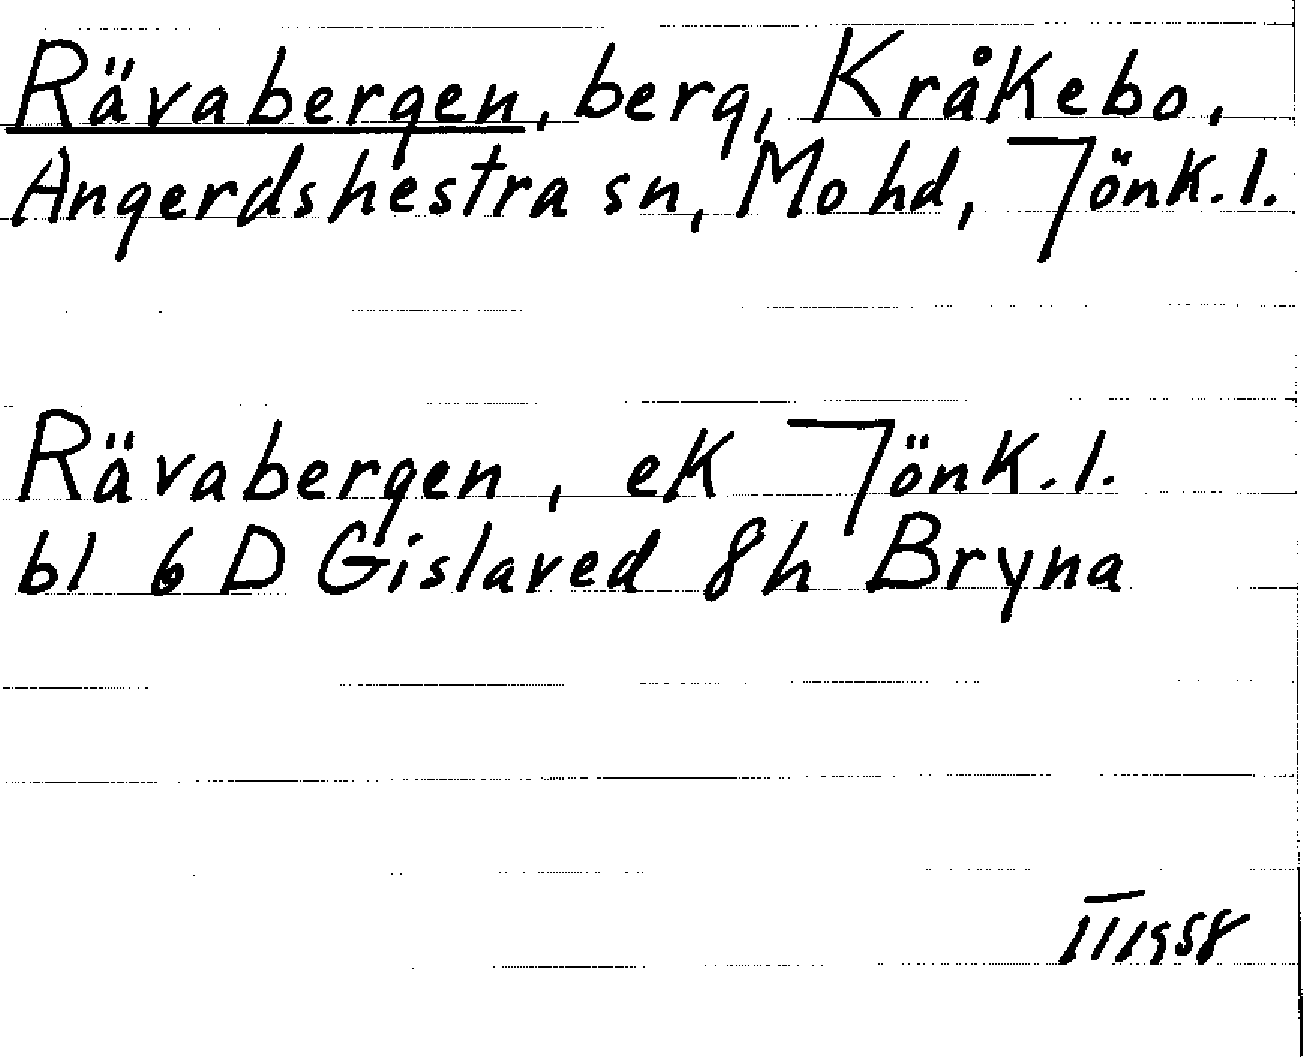 Rävabergen, berg, Kråkebo,
Angerdshestra sn, Mo hd, Jönk. l.
Rävabergen, ek Jönk. l.
bl 6 D Gislaved 8h Bryna
II 1958